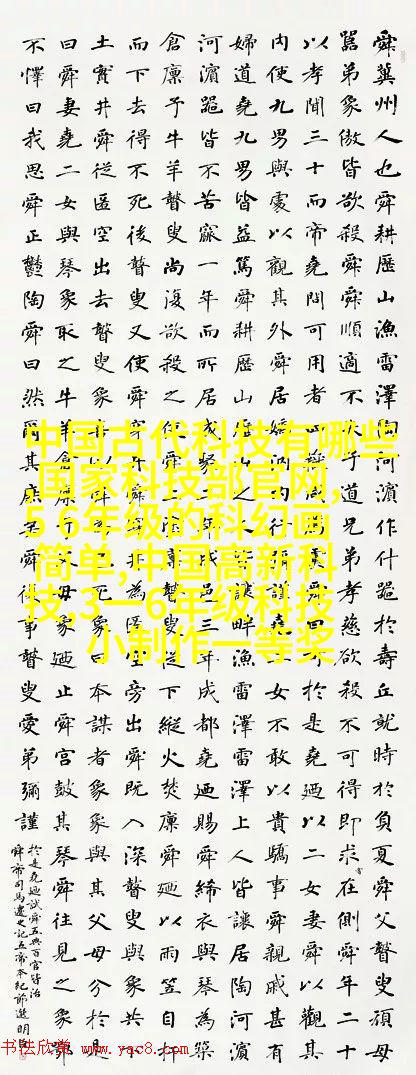 舜冀州人也舜耕歷山漁雷澤陶河濱作什噐於壽丘就時於負夏舜父瞽叟頑母
嚚弟象傲皆欲殺舜舜順適不失子道兄弟孝慈欲殺不可得即求在側舜年二十
以孝聞三十而帝堯問可用者四嶽咸薦虞舜曰可於是堯廼以二女妻舜以觀其
內使九男與處以觀其外舜居媯汭內行彌謹堯二女不敢以貴驕事舜親戚甚有
婦道堯九男皆益篤舜耕歷山歷山之人皆讓畔漁雷澤雷澤上人皆讓居陶河濱
河濱噐皆不苦窳一年而所居成聚二年成邑三年成都堯廼賜舜絺衣與琴為築
倉廩予牛羊瞽叟尚復欲殺之使舜上塗廩瞽叟從下縱火焚廩舜廼以兩笠自扞
而下去得不死後瞽叟又使舜穿井舜穿井為匿空旁出舜既入深瞽叟與象共下
土實井舜從匿空出去瞽叟象喜以舜為已死象曰本謀者象象與其父母分於是
曰舜妻堯二女與琴象取之牛羊倉廩予父母象廼止舜宮鼓其琴舜往見之象鄂
不懌曰我思舜正鬱陶舜曰然爾其庶矣舜復事瞽叟愛弟彌謹
於是堯廼試舜五典百官皆治
舜帝司馬遷史記五帝本紀節選明
中国古代科技有哪些
,国家科技部官网,
5 6年级的科幻画
简单,中国高新科
技,3一6年级科技
小制作一等奖
书法欣赏 www.yac8.com